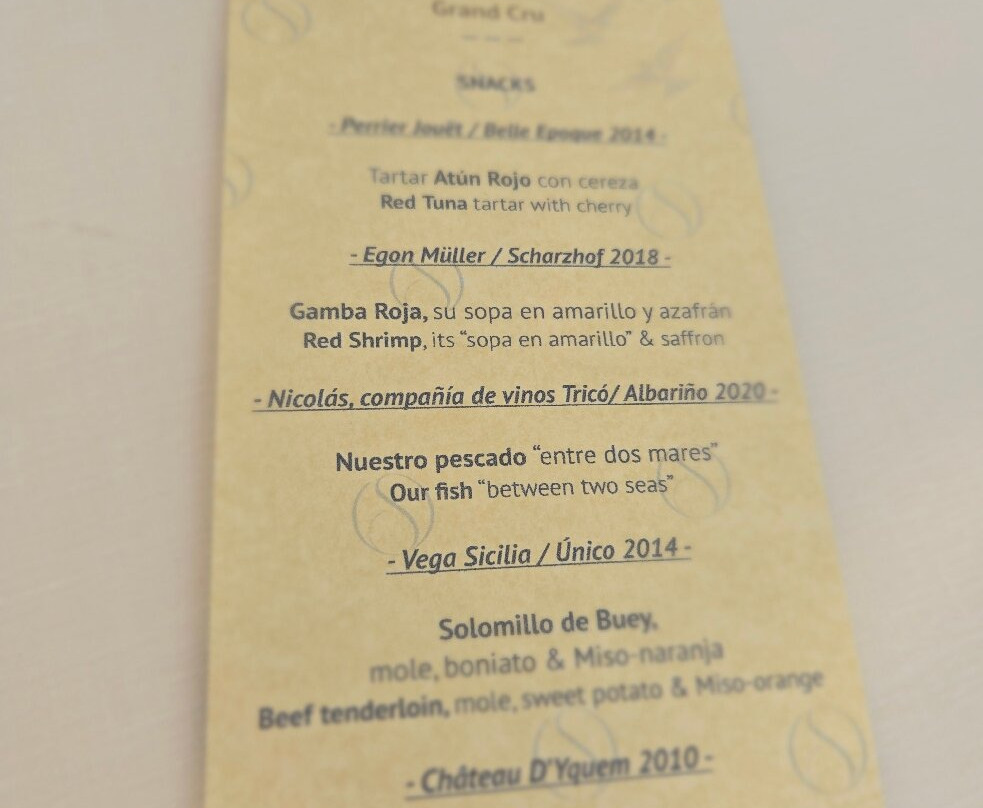 Grand Cru
---
SNACKS
- Perrier Jouët / Belle Epoque 2014 -
Tartar Atún Rojo con cereza
Red Tuna tartar with cherry
- Egon Müller / Scharzhof 2018 -
Gamba Roja, su sopa en amarillo y azafrán
Red Shrimp, its “sopa en amarillo” & saffron
- Nicolás, compañía de vinos Tricó/ Albariño 2020 -
Nuestro pescado “entre dos mares”
Our fish “between two seas”
- Vega Sicilia / Único 2014 -
Solomillo de Buey,
mole, boniato & Miso-naranja
Beef tenderloin, mole, sweet potato & Miso-orange
- Château D'Yquem 2010 -